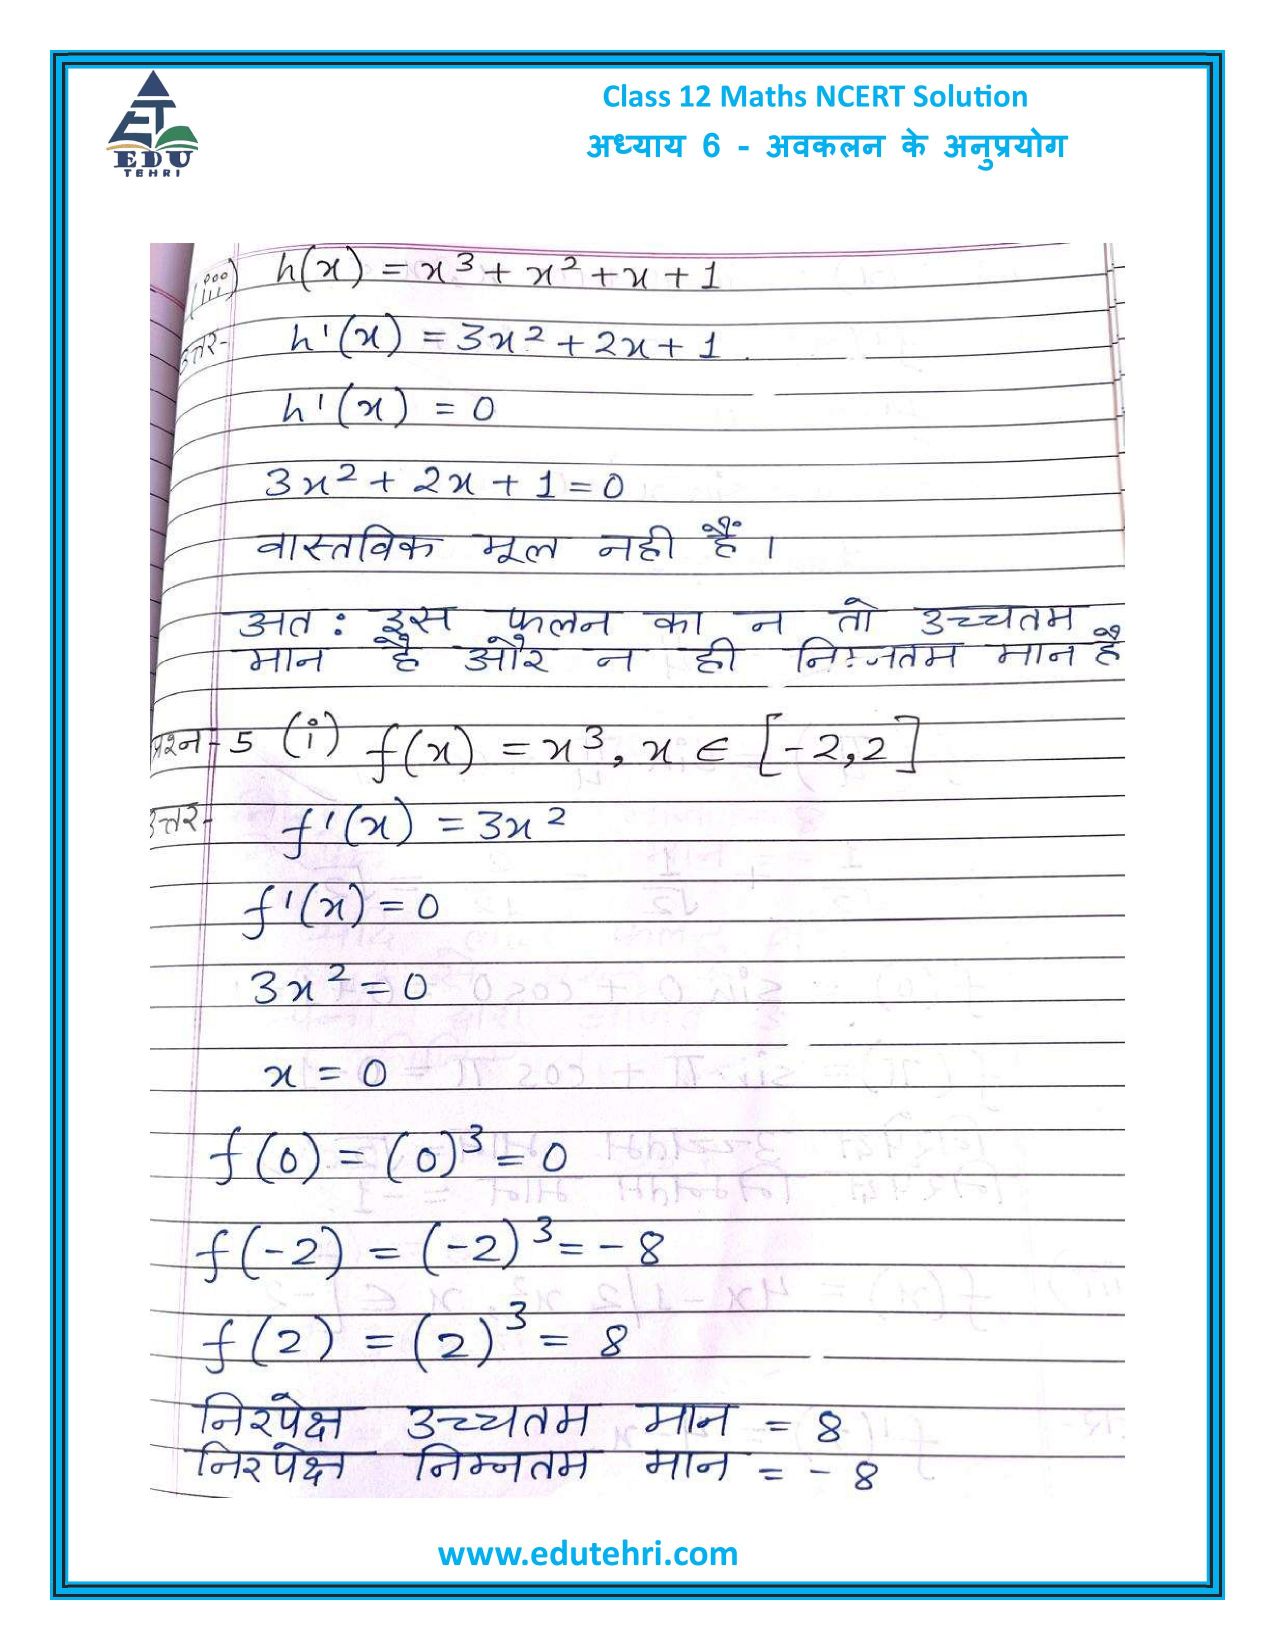 ET
EDU
TEHRI
Class 12 Maths NCERT Solution
अध्याय 6 - अवकलन के अनुप्रयोग
(iii) h(x) = x³ + x² + x + 1
उत्तर- h'(x) = 3x² + 2x + 1
h'(x) = 0
3x² + 2x + 1 = 0
वास्तविक मूल नही हैं।
अत: इस फलन का न तो उच्चतम
मान है और न ही निम्नतम मान है
प्रश्न-5 (i) f(x) = x³, x ∈ [-2,2]
उत्तर- f'(x) = 3x²
f'(x) = 0
3x² = 0
x = 0
f(0) = (0)³ = 0
f(-2) = (-2)³ = -8
f(2) = (2)³ = 8
निरपेक्ष उच्चतम मान = 8
निरपेक्ष निम्नतम मान = -8
www.edutehri.com